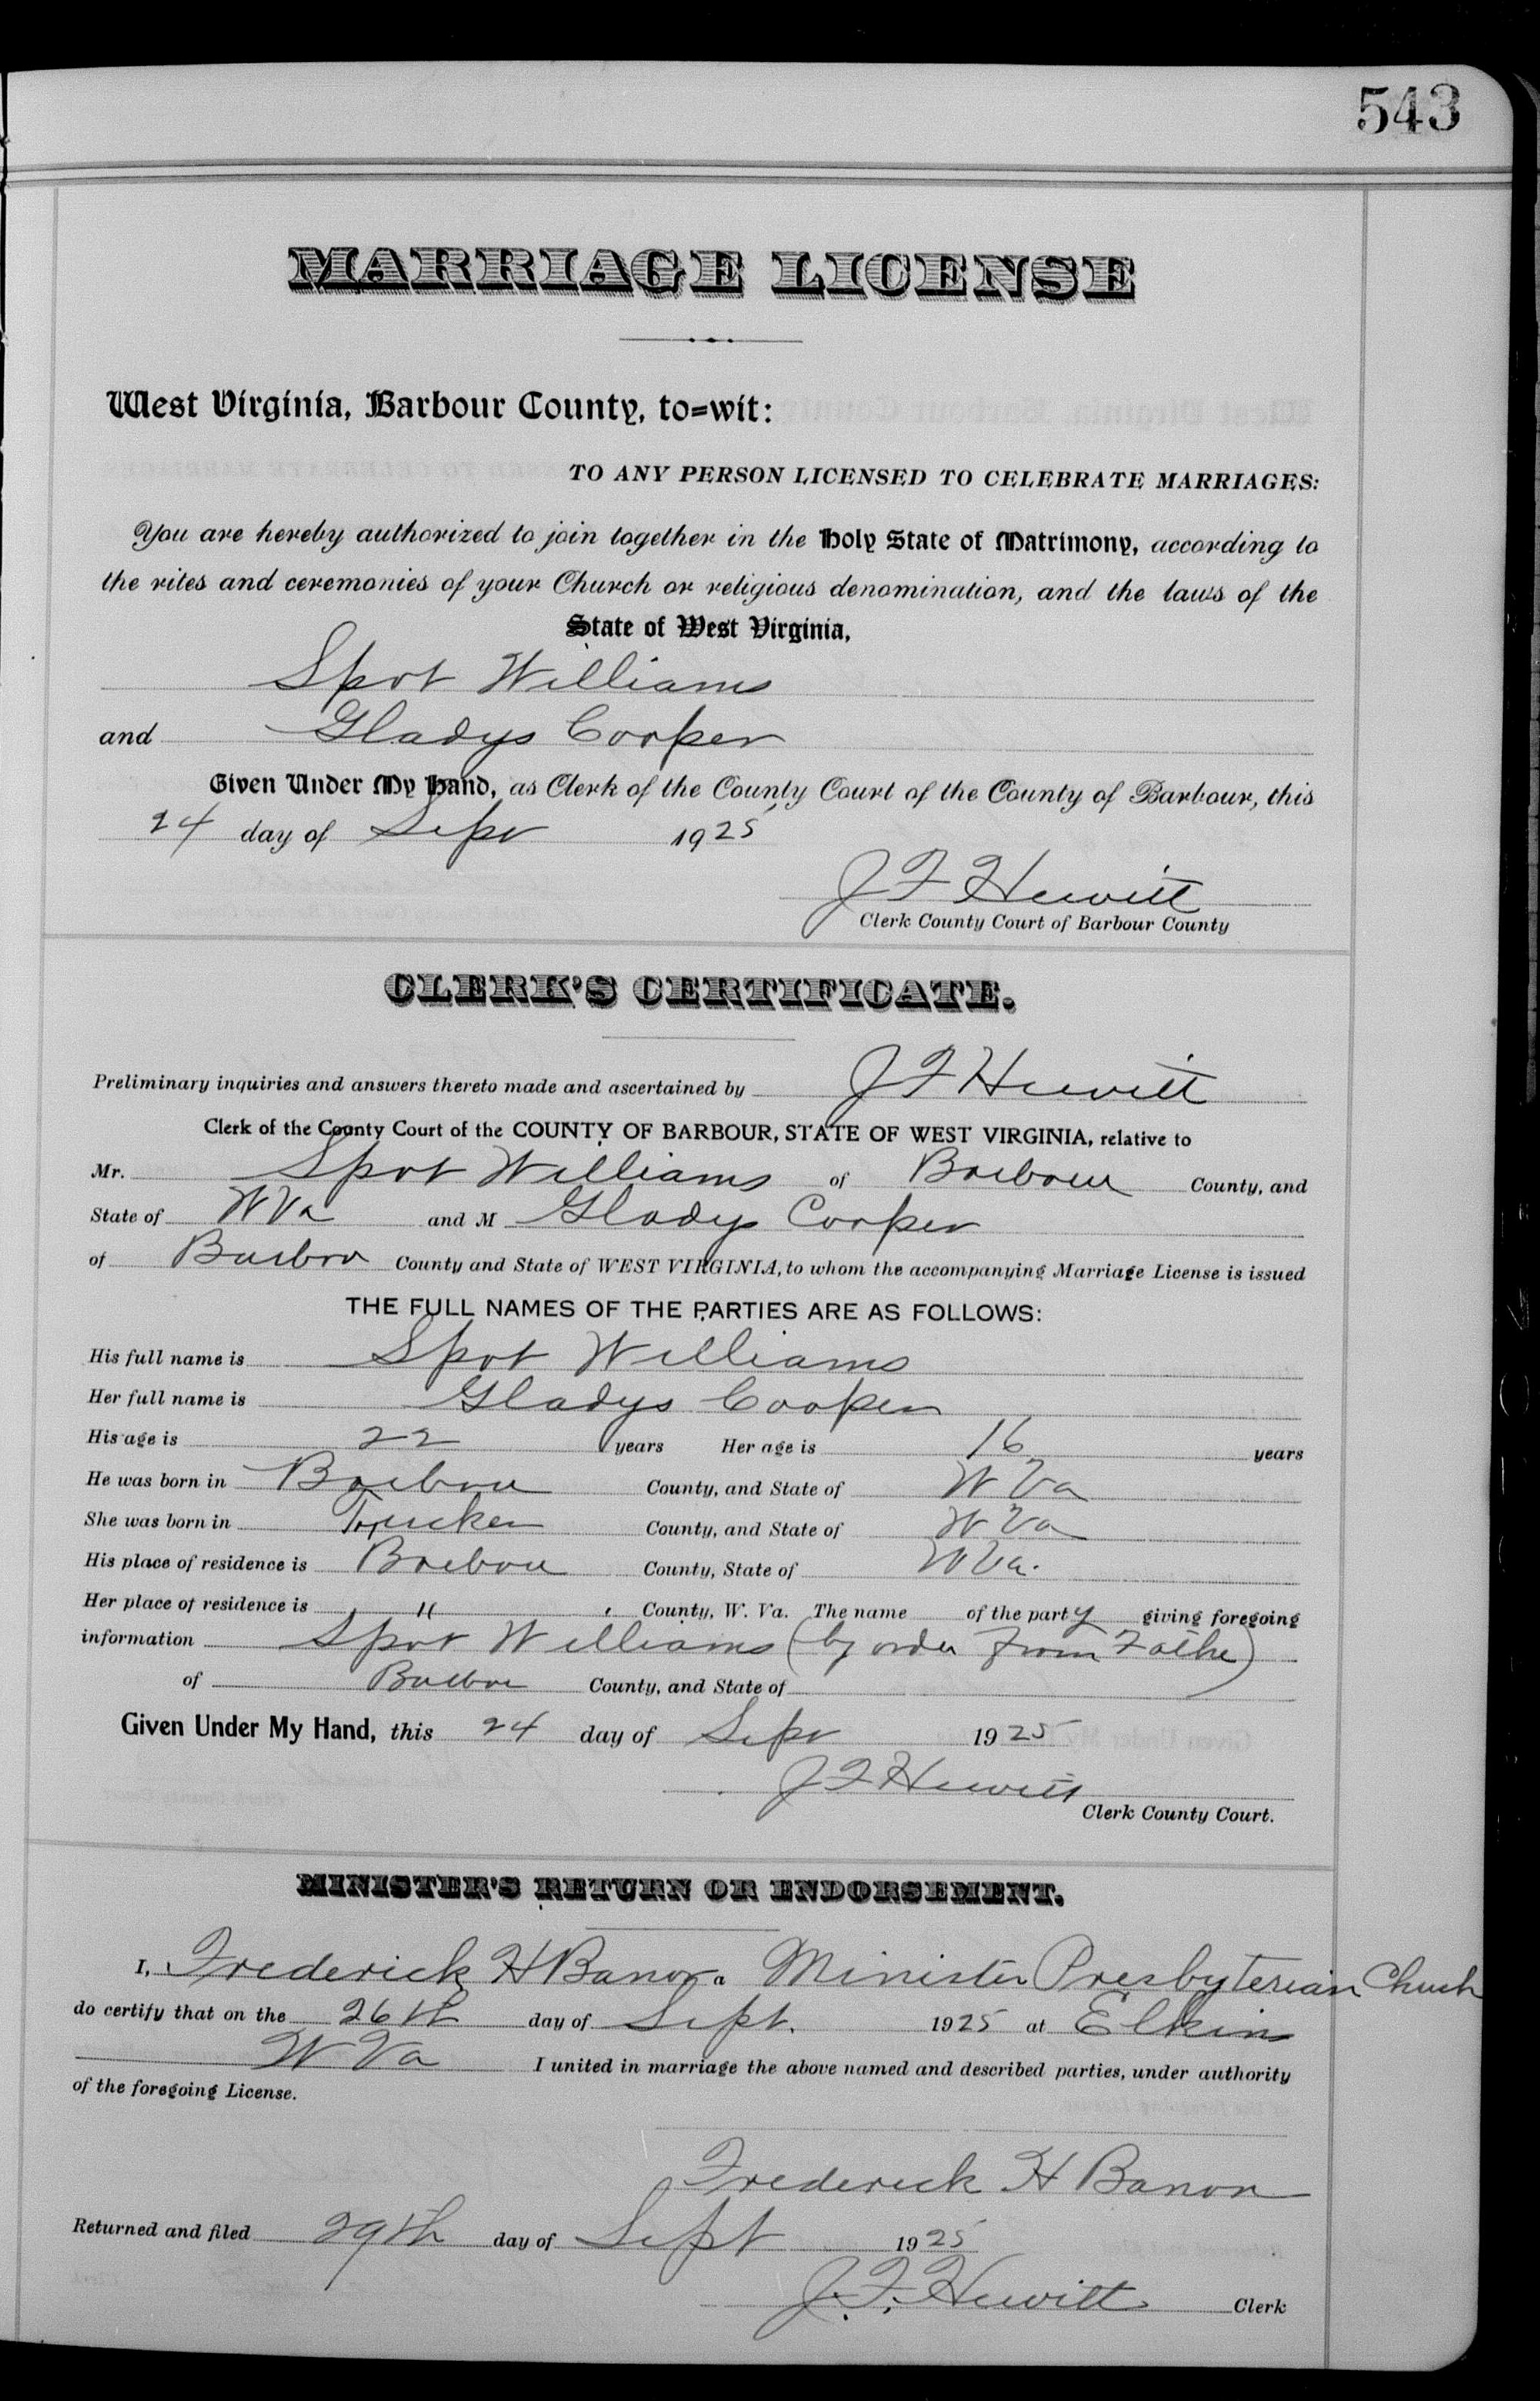 543
MARRIAGE LICENSE
West Virginia, Barbour County, to=wit:
TO ANY PERSON LICENSED TO CELEBRATE MARRIAGES:
You are hereby authorized to join together in the Holy State of Matrimony, according to
the rites and ceremonies of your Church or religious denomination, and the laws of the
State of West Virginia,
Spot Williams
and Gladys Cooper
Given Under My Hand, as Clerk of the County Court of the County of Barbour, this
24 day of Sept 1925
J F Hewitt
Clerk County Court of Barbour County
CLERK'S CERTIFICATE.
Preliminary inquiries and answers thereto made and ascertained by J F Hewitt
Clerk of the County Court of the COUNTY OF BARBOUR, STATE OF WEST VIRGINIA, relative to
Mr. Spot Williams of Barbour County, and
State of W Va and M Gladys Cooper
of Barbour County and State of WEST VIRGINIA, to whom the accompanying Marriage License is issued
THE FULL NAMES OF THE PARTIES ARE AS FOLLOWS:
His full name is Spot Williams
Her full name is Gladys Cooper
His age is 22 years Her age is 16 years
He was born in Barbour County, and State of W Va
She was born in Tucker County, and State of W Va
His place of residence is Barbour County, State of W Va.
Her place of residence is " County, W. Va. The name of the party giving foregoing
information Spot Williams (by order from Father)
of Barbour County, and State of
Given Under My Hand, this 24 day of Sept 1925
J F Hewitt
Clerk County Court.
MINISTER'S RETURN OR ENDORSEMENT.
I, Frederick H Barron a Minister Presbyterian Church
do certify that on the 26th day of Sept. 1925 at Elkins
W Va I united in marriage the above named and described parties, under authority
of the foregoing License.
Frederick H Barron
Returned and filed 29th day of Sept 1925
J. F. Hewitt Clerk